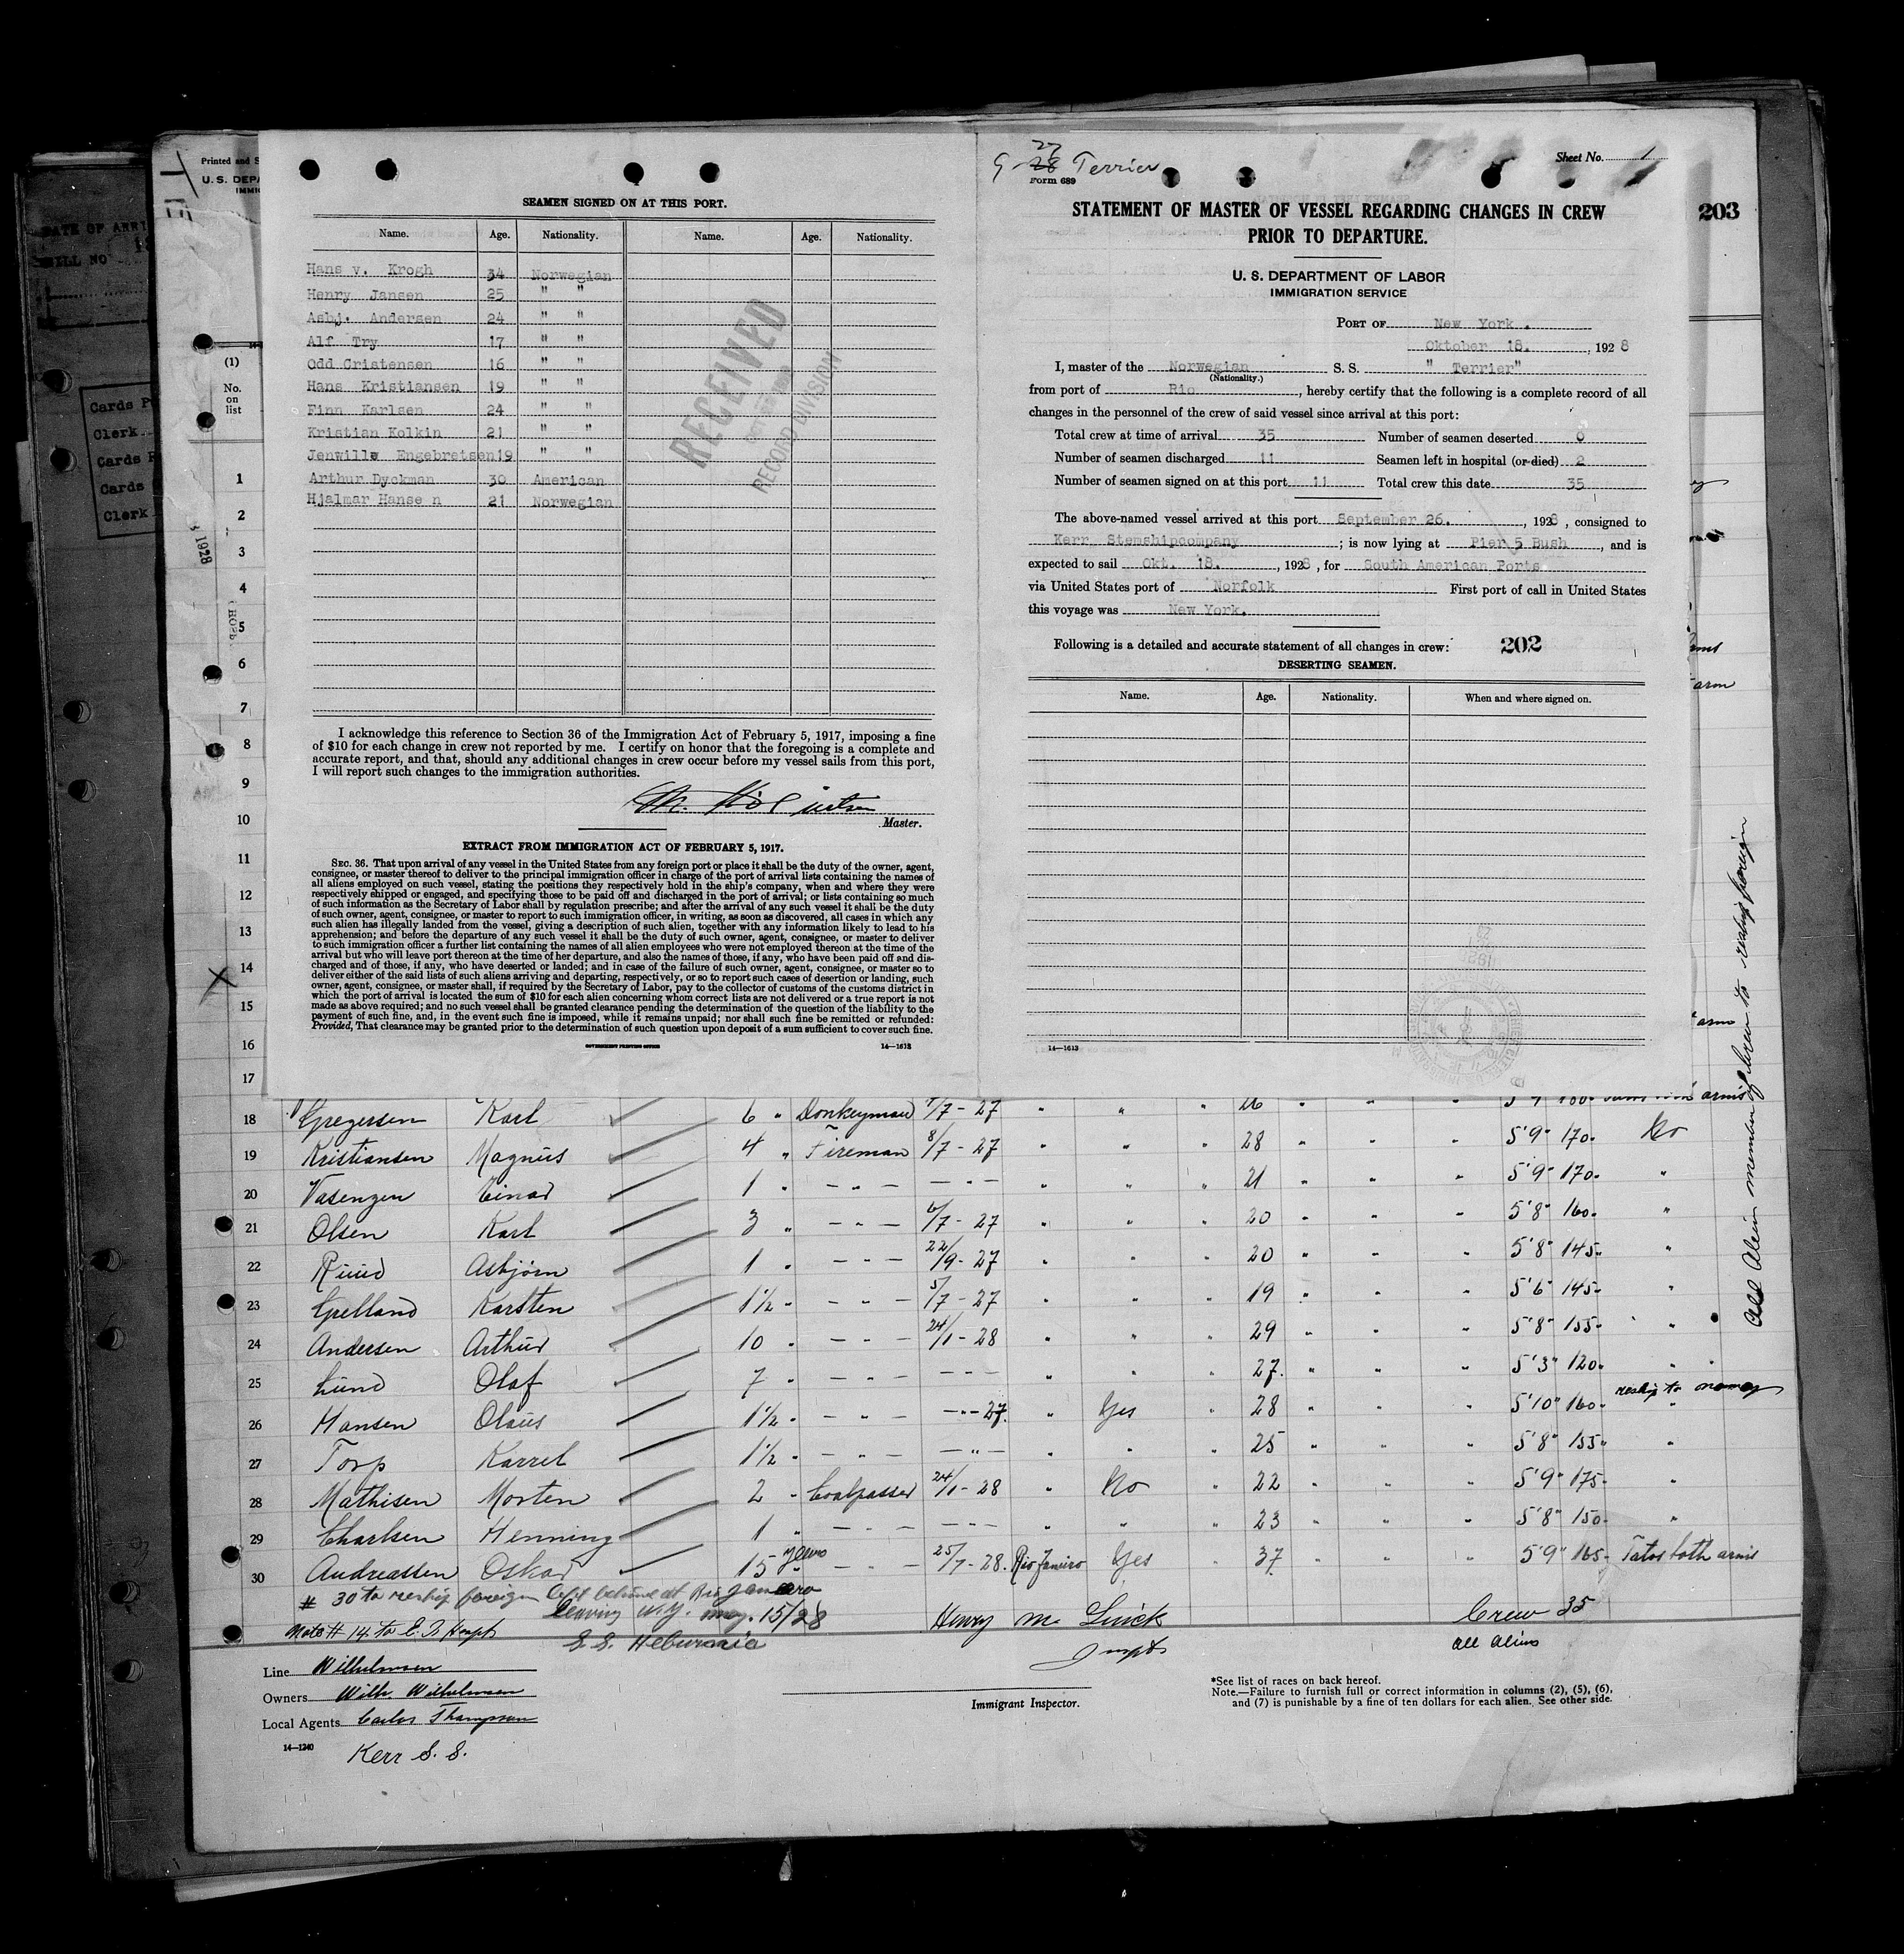 Printed and S
U. S. DEPA
IMMIG
DATE OF ARRI
BILL NO
Cards
Clerk
Cards
Cards
Clerk
(1)
No.
on
list
1928
HOSP.
1
2
3
4
5
6
7
8
9
10
11
12
13
14
15
16
17
SEAMEN SIGNED ON AT THIS PORT.
Name. Age. Nationality. Name. Age. Nationality.
Hans v. Krogh 34 Norwegian
Henry Jansen 25 " "
Asbj. Andersen 24 " "
Alf Try 17 " "
Odd Cristensen 16 " "
Hans Kristiansen 19 " "
Finn Karlsen 24 " "
Kristian Kolkin 21 " "
Jenwille Engebretsen 19 " "
Arthur Dyckman 30 American
Hjalmar Hanse n 21 Norwegian
RECEIVED
RECORD DIVISION
I acknowledge this reference to Section 36 of the Immigration Act of February 5, 1917, imposing a fine
of $10 for each change in crew not reported by me. I certify on honor that the foregoing is a complete and
accurate report, and that, should any additional changes in crew occur before my vessel sails from this port,
I will report such changes to the immigration authorities.
Master.
EXTRACT FROM IMMIGRATION ACT OF FEBRUARY 5, 1917.
SEC. 36. That upon arrival of any vessel in the United States from any foreign port or place it shall be the duty of the owner, agent,
consignee, or master thereof to deliver to the principal immigration officer in charge of the port of arrival lists containing the names of
all aliens employed on such vessel, stating the positions they respectively hold in the ship's company, when and where they were
respectively shipped or engaged, and specifying those to be paid off and discharged in the port of arrival; or lists containing so much
of such information as the Secretary of Labor shall by regulation prescribe; and after the arrival of any such vessel it shall be the duty
of such owner, agent, consignee, or master to report to such immigration officer, in writing, as soon as discovered, all cases in which any
such alien has illegally landed from the vessel, giving a description of such alien, together with any information likely to lead to his
apprehension; and before the departure of any such vessel it shall be the duty of such owner, agent, consignee, or master to deliver
to such immigration officer a further list containing the names of all alien employees who were not employed thereon at the time of the
arrival but who will leave port thereon at the time of her departure, and also the names of those, if any, who have been paid off and dis-
charged and of those, if any, who have deserted or landed; and in case of the failure of such owner, agent, consignee, or master so to
deliver either of the said lists of such aliens arriving and departing, respectively, or so to report such cases of desertion or landing, such
owner, agent, consignee, or master shall, if required by the Secretary of Labor, pay to the collector of customs of the customs district in
which the port of arrival is located the sum of $10 for each alien concerning whom correct lists are not delivered or a true report is not
made as above required; and no such vessel shall be granted clearance pending the determination of the question of the liability to the
payment of such fine, and, in the event such fine is imposed, while it remains unpaid; nor shall such fine be remitted or refunded:
Provided, That clearance may be granted prior to the determination of such question upon deposit of a sum sufficient to cover such fine.
GOVERNMENT PRINTING OFFICE 14—1613
27
G-28 Terrier
Form 689
Sheet No. 1
STATEMENT OF MASTER OF VESSEL REGARDING CHANGES IN CREW
PRIOR TO DEPARTURE.
203
U. S. DEPARTMENT OF LABOR
IMMIGRATION SERVICE
PORT OF New York .
Oktober 18. , 1928
I, master of the Norwegian S. S. " Terrier"
(Nationality.)
from port of Rio , hereby certify that the following is a complete record of all
changes in the personnel of the crew of said vessel since arrival at this port:
Total crew at time of arrival 35 Number of seamen deserted 0
Number of seamen discharged 11 Seamen left in hospital (or died) 2
Number of seamen signed on at this port 11 Total crew this date 35
The above-named vessel arrived at this port September 26. , 1928 , consigned to
Kerr Stemshipcompany ; is now lying at Pier 5 Bush , and is
expected to sail Okt. 18. , 1928 , for South American Ports.
via United States port of Norfolk First port of call in United States
this voyage was New York.
Following is a detailed and accurate statement of all changes in crew: 202
DESERTING SEAMEN.
Name. Age. Nationality. When and where signed on.
14—1613
arm
All Alien members of crew to reship foreign
18 Gregersen Karl 6 " Donkeyman 1/7 - 27 " " " 26 " " " arms
19 Kristiansen Magnus 4 " Fireman 8/7 - 27 " " " 28 " " " 5'9" 170 - No
20 Vasengen Einar 1 " — " — — " — " " " 21 " " " 5'9" 170 - "
21 Olsen Karl 3 " — " — 6/7 - 27 " " " 20 " " " 5'8" 160 - "
22 Ruud Asbjørn 1 " — " — 22/9 - 27 " " " 20 " " " 5'8" 145 - "
23 Gjelland Karsten 1½ " — " — 5/7 - 27 " " " 19 " " " 5'6" 145 - "
24 Andersen Arthur 10 " — " — 24/1 - 28 " " " 29 " " " 5'8" 155 - "
25 Lund Olaf 7 " — " — — " — " " " 27 " " " 5'3" 120 - "
reship to norway
26 Hansen Olaus 1½ " — " — — " — 27. " Yes " 28 " " " 5'10" 160 - "
27 Torp Karrel 1½ " — " — — " — " " " 25 " " " 5'8" 155 - "
28 Mathisen Morten 2 " Coalpasser 24/1 - 28 " No " 22 " " " 5'9" 175 - "
29 Charlsen Henning 1 " — " — — " — " " " 23 " " " 5'8" 150 - "
30 Andreassen Oskar 15 years — " — 25/7 - 28. Rio Janeiro Yes " 37 " " " 5'9" 165 - Tatos both arms
# 30 to reship foreign Left behind at Rio Janeiro
leaving N.Y. may. 15/28
Note # 14 to
S. S.
Henry M.
Inspt
Crew 35
all aliens
Line Wilhelmsen
Owners Wilh. Wilhelmsen
Local Agents Carlos Thompson
14—1240
Kerr S. S.
Immigrant Inspector.
*See list of races on back hereof.
Note.—Failure to furnish full or correct information in columns (2), (5), (6),
and (7) is punishable by a fine of ten dollars for each alien. See other side.